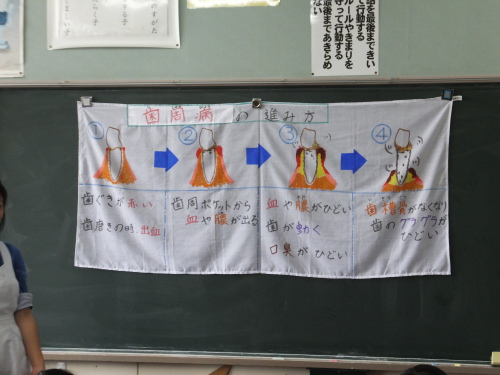 のすがた
話を最後まできい
て行動する
ルールやきまりを
守って行動する
最後まであきらめ
ない
歯周病の進み方
①
歯ぐきが赤い
歯磨きの時、出血
②
歯周ポケットから
血や膿が出る
③
血や膿がひどい
歯が動く
口臭がひどい
④
歯槽骨がなくなり
歯のグラグラが
ひどい